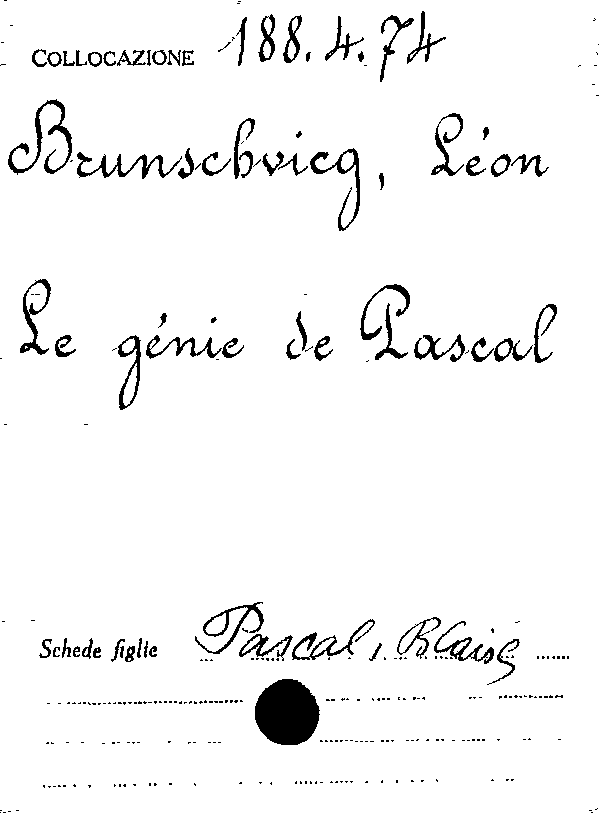 COLLOCAZIONE 188.4.74
Brunschvicg, Léon
Le génie de Pascal
Schede figlie Pascal, Blaise